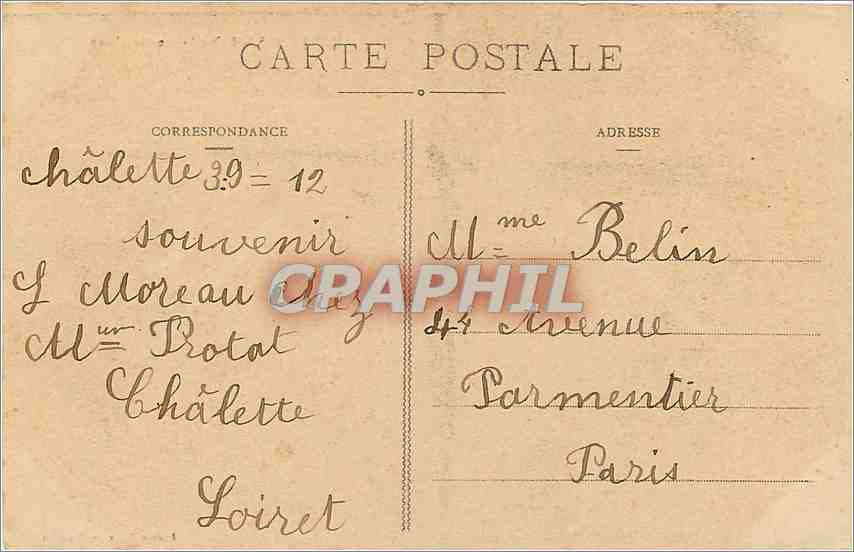 CARTE POSTALE
CORRESPONDANCE
châlette 3.9 = 12
souvenir
L Moreau chez
Mur Protat
Châlette
Loiret
ADRESSE
Mme Belin
44 Avenue
Parmentier
Paris
CPAPHIL